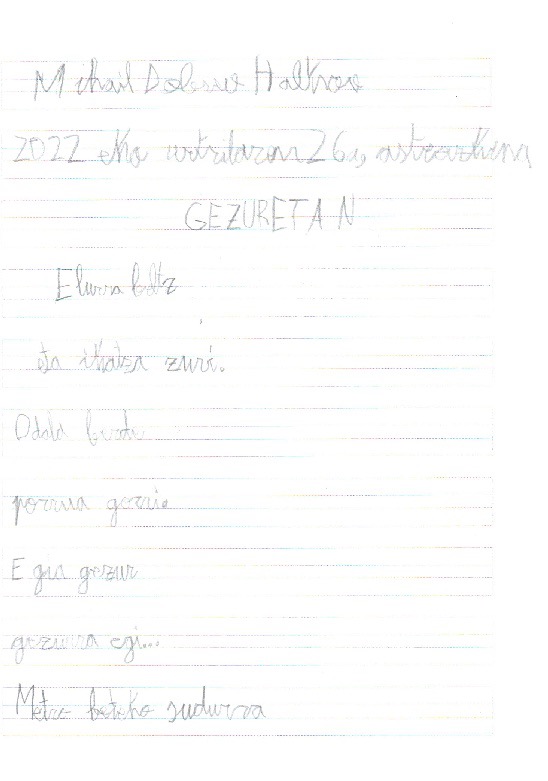 Mihail
2022 eko urtrilaren 26a,
GEZURETAN
Elurra beltz
eta ikatza zuri.
Odola berde
porrua gorri.
Egia gezur
gezurra egi...
Metro bateko sudurra